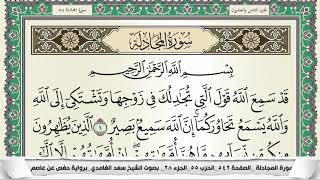 الجزء الثامن والعشرون
سورة المجادلة ٥٨
سُورَةُ الْمُجَادلَةِ
بِسْمِ اللَّهِ الرَّحْمَٰنِ الرَّحِيمِ
قَدْ سَمِعَ اللَّهُ قَوْلَ الَّتِي تُجَٰدِلُكَ فِي زَوْجِهَا وَتَشْتَكِي إِلَى اللَّهِ
وَاللَّهُ يَسْمَعُ تَحَاوُرَكُمَا إِنَّ اللَّهَ سَمِيعٌ بَصِيرٌ ١ الَّذِينَ يُظَٰهِرُونَ
سورة المجادلة _ الصفحة ٥٤٢ _ الحزب ٥٥ _ الجزء ٢٨ _ بصوت الشيخ سعد الغامدي _ برواية حفص عن عاصم